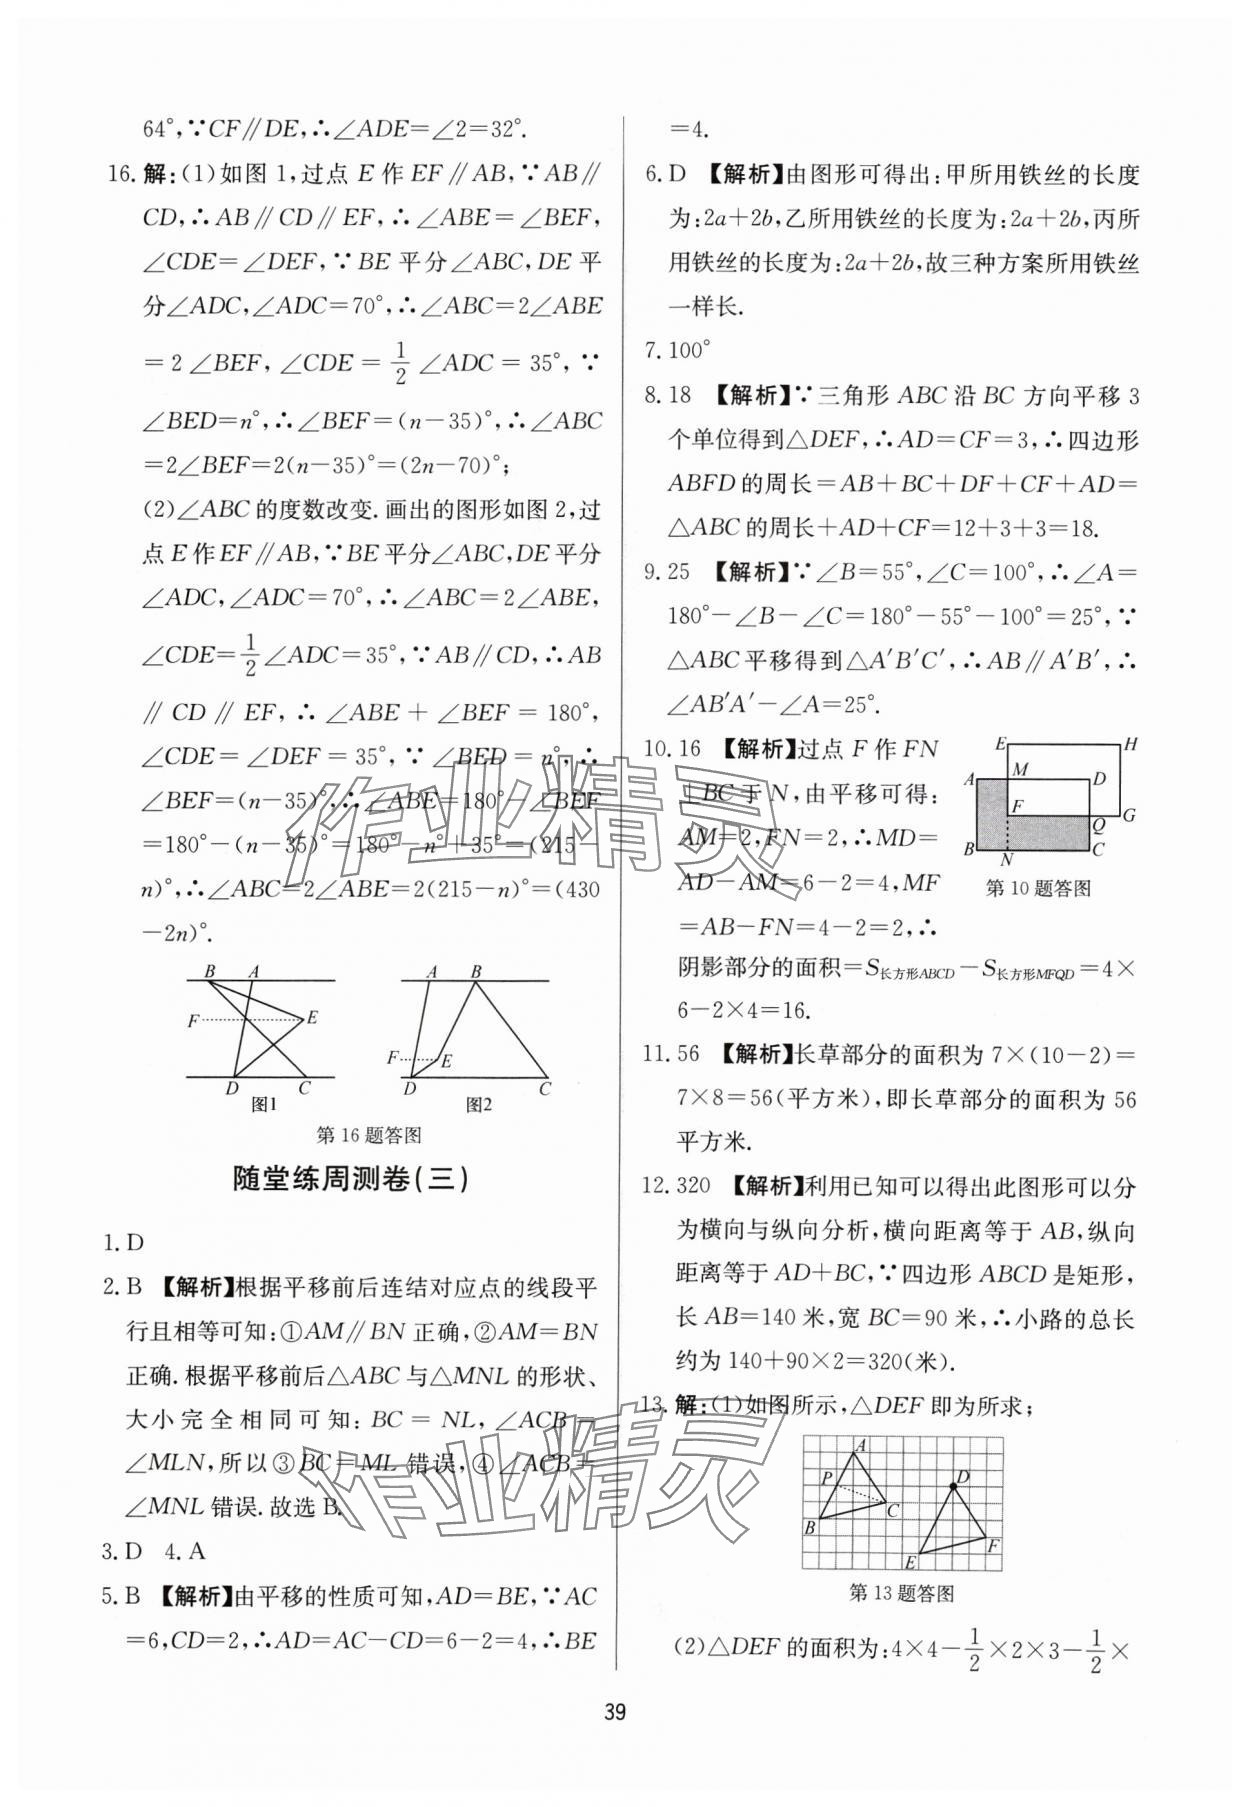 64°,∵CF∥DE,∴∠ADE=∠2=32°.
16.解:(1)如图1,过点E作EF∥AB,∵AB∥
CD,∴AB∥CD∥EF,∴∠ABE=∠BEF,
∠CDE=∠DEF,∵BE平分∠ABC,DE平
分∠ADC,∠ADC=70°,∴∠ABC=2∠ABE
=2∠BEF,∠CDE=1/2∠ADC=35°,∵
∠BED=n°,∴∠BEF=(n-35)°,∴∠ABC
=2∠BEF=2(n-35)°=(2n-70)°;
(2)∠ABC的度数改变.画出的图形如图2,过
点E作EF∥AB,∵BE平分∠ABC,DE平分
∠ADC,∠ADC=70°,∴∠ABC=2∠ABE,
∠CDE=1/2∠ADC=35°,∵AB∥CD,∴AB
∥CD∥EF,∴∠ABE+∠BEF=180°,
∠CDE=∠DEF=35°,∵∠BED=n°,∴
∠BEF=(n-35)°,∴∠ABE=180°-∠BEF
=180°-(n-35)°=180°-n°+35°=(215-
n)°,∴∠ABC=2∠ABE=2(215-n)°=(430
-2n)°.
B A
F E
D C
图1
A B
F E
D C
图2
第16题答图
随堂练周测卷(三)
1.D
2.B 【解析】根据平移前后连结对应点的线段平
行且相等可知:①AM∥BN正确,②AM=BN
正确.根据平移前后△ABC与△MNL的形状、
大小完全相同可知:BC=NL,∠ACB=
∠MLN,所以③BC=ML错误,④∠ACB=
∠MNL错误.故选B.
3.D 4.A
5.B 【解析】由平移的性质可知,AD=BE,∵AC
=6,CD=2,∴AD=AC-CD=6-2=4,∴BE
=4.
6.D 【解析】由图形可得出:甲所用铁丝的长度
为:2a+2b,乙所用铁丝的长度为:2a+2b,丙所
用铁丝的长度为:2a+2b,故三种方案所用铁丝
一样长.
7.100°
8.18 【解析】∵三角形ABC沿BC方向平移3
个单位得到△DEF,∴AD=CF=3,∴四边形
ABFD的周长=AB+BC+DF+CF+AD=
△ABC的周长+AD+CF=12+3+3=18.
9.25 【解析】∵∠B=55°,∠C=100°,∴∠A=
180°-∠B-∠C=180°-55°-100°=25°,∵
△ABC平移得到△A′B′C′,∴AB∥A′B′,∴
∠AB′A′-∠A=25°.
10.16 【解析】过点F作FN
⊥BC于N,由平移可得:
AM=2,FN=2,∴MD=
AD-AM=6-2=4,MF
=AB-FN=4-2=2,∴
阴影部分的面积=S长方形ABCD-S长方形MFQD=4×
6-2×4=16.
E H
A M D
F Q G
B N C
第10题答图
11.56 【解析】长草部分的面积为7×(10-2)=
7×8=56(平方米),即长草部分的面积为56
平方米.
12.320 【解析】利用已知可以得出此图形可以分
为横向与纵向分析,横向距离等于AB,纵向
距离等于AD+BC,∵四边形ABCD是矩形,
长AB=140米,宽BC=90米,∴小路的总长
约为140+90×2=320(米).
13.解:(1)如图所示,△DEF即为所求;
A
P D
C
B F
E
第13题答图
(2)△DEF的面积为:4×4-1/2×2×3-1/2×
39
作业精灵
作业精灵